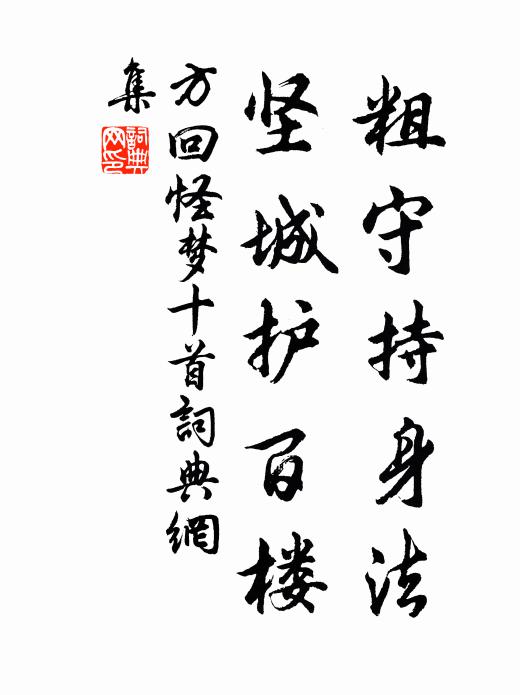 粗守持身法
坚城护百楼
方回怪梦十首詞典網
集
詞典
网印